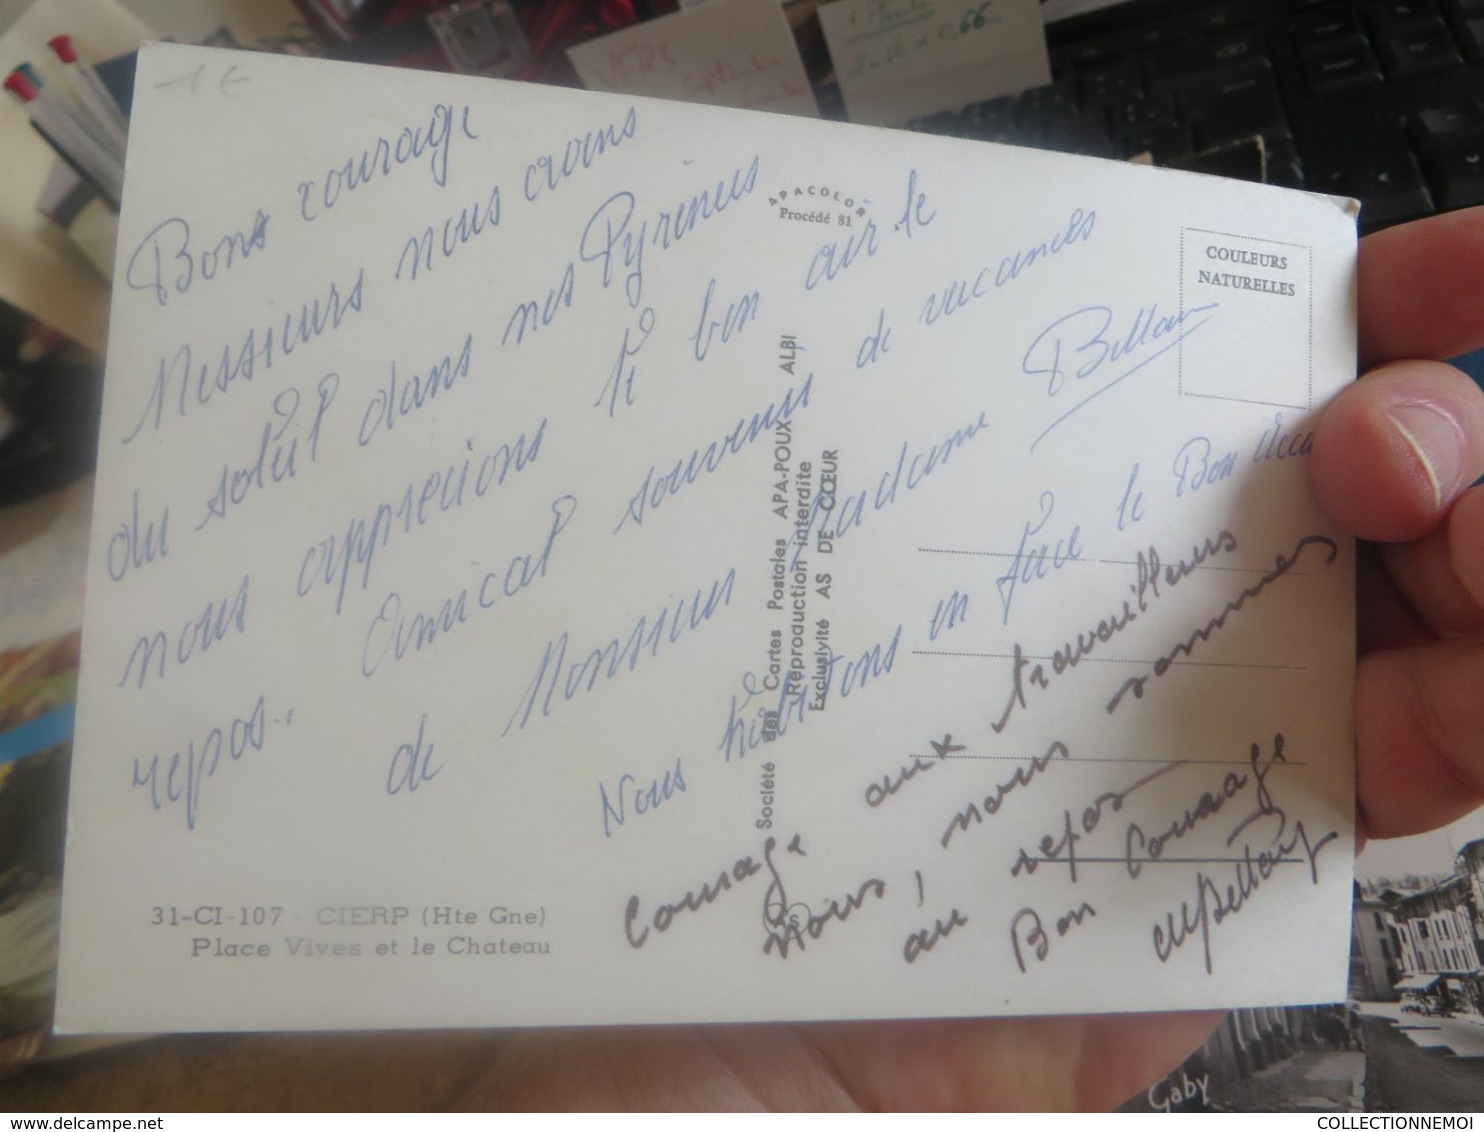 1 €
Bons courage
Messieurs nous avons
du soleil dans nos Pyrénées
nous apprecions le bon air le
repos. Amical souvenir de vacances
de Monsieur Madame Bellan
Nous habitons en face le Bon
Courage aux travailleurs
nous, nous sommes
au repos
Bon Courage
31-CI-107 - CIERP (Hte Gne)
Place Vives et le Chateau
APACOLOR
Procédé 81
Société des Cartes Postales APA-POUX ALBI
Reproduction interdite
Exclusivité AS DE CŒUR
COULEURS
NATURELLES
VERS
Septembre
0,66
Gaby
COLLECTIONNEMOI